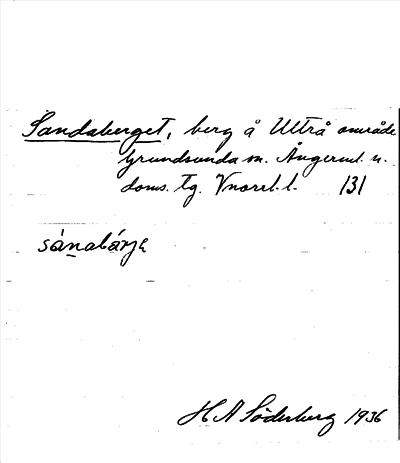 Sandaberget, berg å Ultrå område
Grundsunda sn. Ångerml. n.
doms. tg. Vnorrl. l. 131
sánabárjɛ
H A Söderberg 1936